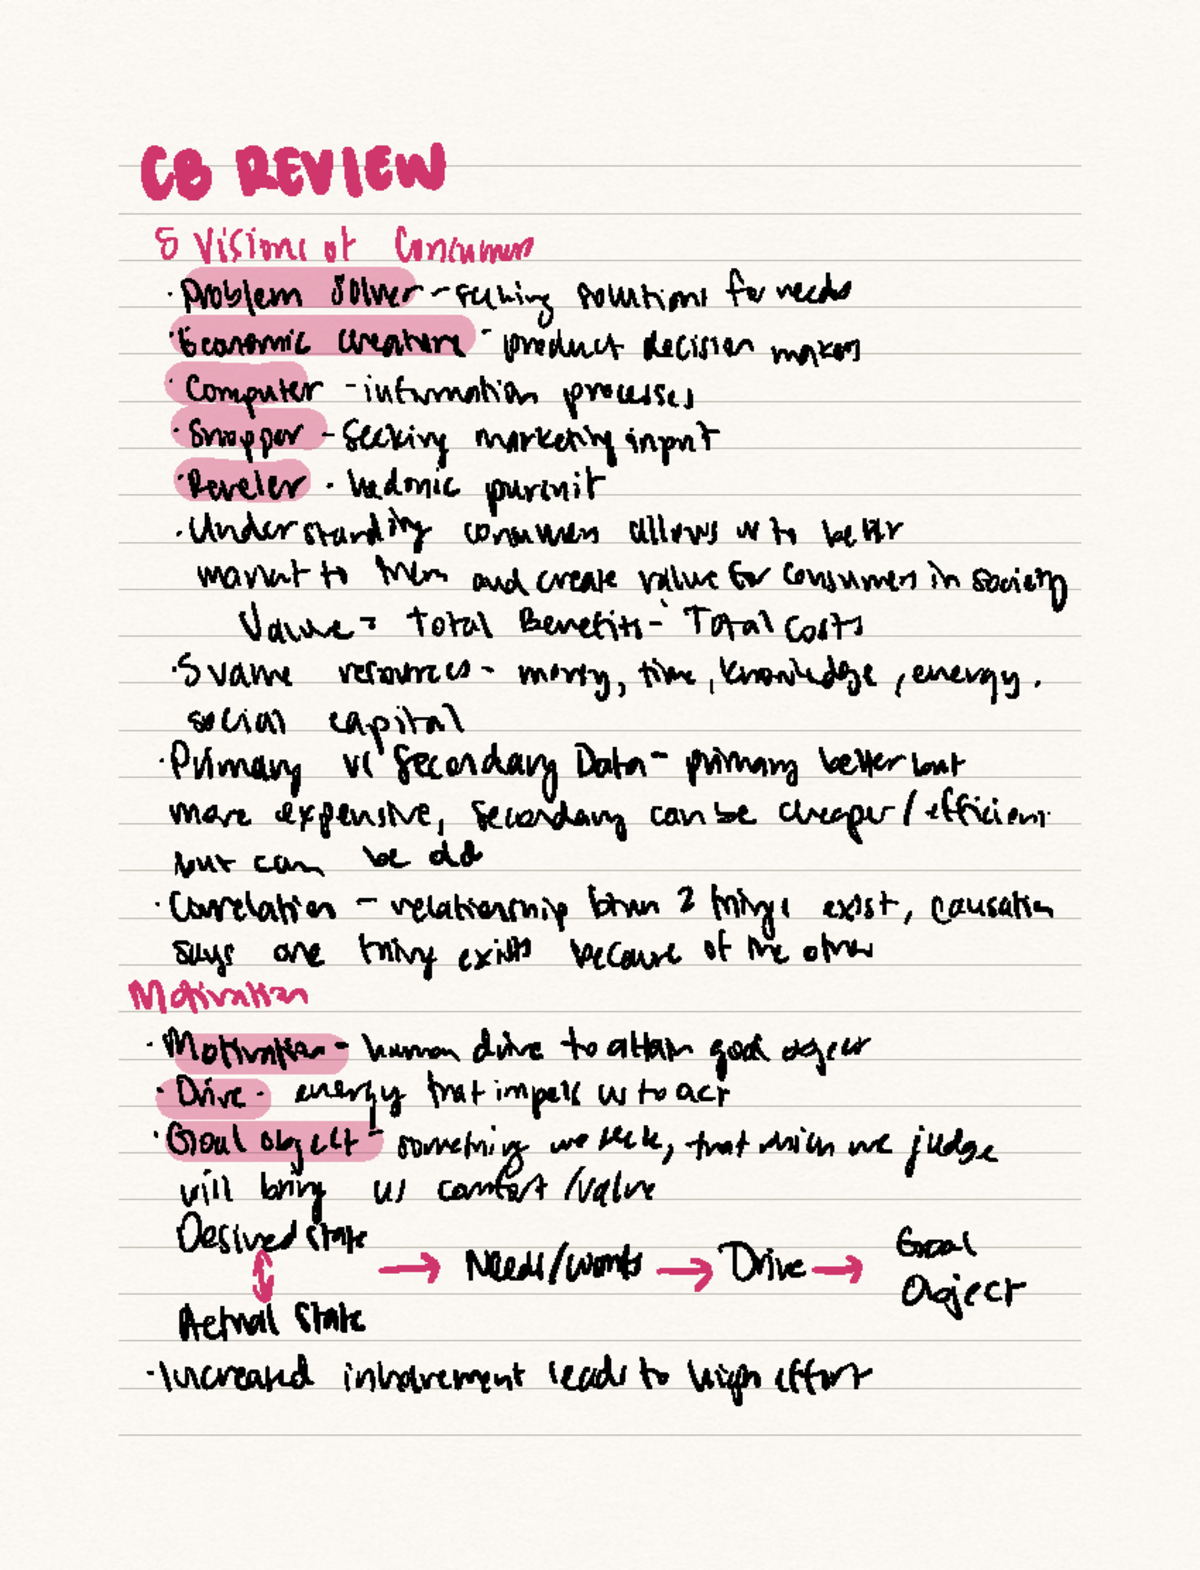 CB REVIEW
5 Visions of Consumers
· Problem Solver - seeking solutions for needs
· Economic Creature - product decision makers
· Computer - information processes
· Shopper - Seeking marketing input
· Reveler - hedonic pursuit
· Understanding consumers allows us to better
market to them and create value for consumers in society
Value = Total Benefits - Total Costs
· 5 value resources - money, time, knowledge, energy,
social capital
· Primary vs Secondary Data - primary better but
more expensive, secondary can be cheaper/efficient
but can be old
· Correlation - relationship btwn 2 things exist, causation
says one thing exists because of the other
Motivation
· Motivation - human drive to attain goal object
· Drive - energy that impels us to act
· Goal object - something we seek, that which we judge
will bring us comfort/value
Desired State
→ Needs/wants → Drive → Goal Object
Actual State
· Increased involvement leads to high effort